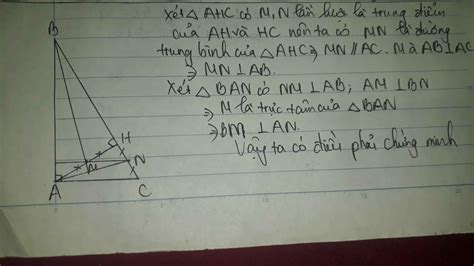 Xét △ AHC có M, N lần lượt là trung điểm
của AH và HC nên ta có MN là đường
trung bình của △ AHC ⇒ MN // AC. Mà AB ⊥ AC
⇒ MN ⊥ AB.
Xét △ BAN có NM ⊥ AB; AM ⊥ BN
⇒ M là trực tâm của △ BAN
⇒ BM ⊥ AN.
Vậy ta có điều phải chứng minh
B
H
M
N
A
C